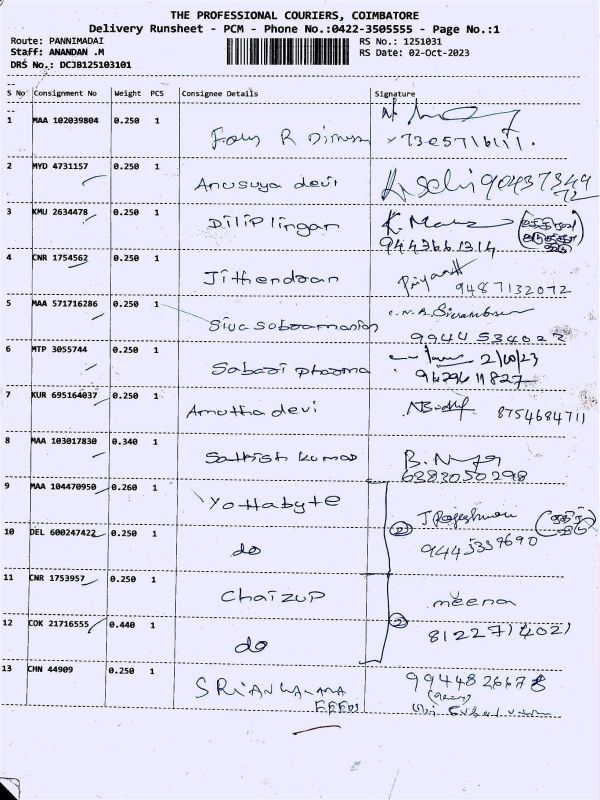 THE PROFESSIONAL COURIERS, COIMBATORE
Delivery Runsheet - PCM - Phone No.:0422-3505555 - Page No.:1
Route: PANNIMADAI RS No.: 1251031
Staff: ANANDAN .M RS Date: 02-Oct-2023
DRS No.: DCJB125103101
S No Consignment No Weight PCS Consignee Details Signature
1 MAA 102039804 0.250 1
R
2 MYD 4731157 0.250 1
Anusuya devi
3 KMU 2634478 0.250 1
Diliplingam K.
9443661314
4 CNR 1754562 0.250 1
Jithendran
9487132072
5 MAA 571716286 0.250 1
Siva Subramanian
9944534023
6 MTP 3055744 0.250 1 2/10/23
Sabari pharma
7 KUR 695164037 0.250 1
Amutha devi 8754684711
8 MAA 103017830 0.340 1
Sathish kumar B.
6383050298
9 MAA 104470950 0.260 1
Yottabyte J Rajeshwari
10 DEL 600247422 0.250 1 2
do 9445339690
11 CNR 1753957 0.250 1
Chaizup meena
12 COK 21716555 0.440 1 2
do 8122714021
13 CHN 44909 0.250 1 9944826678
FEEDS